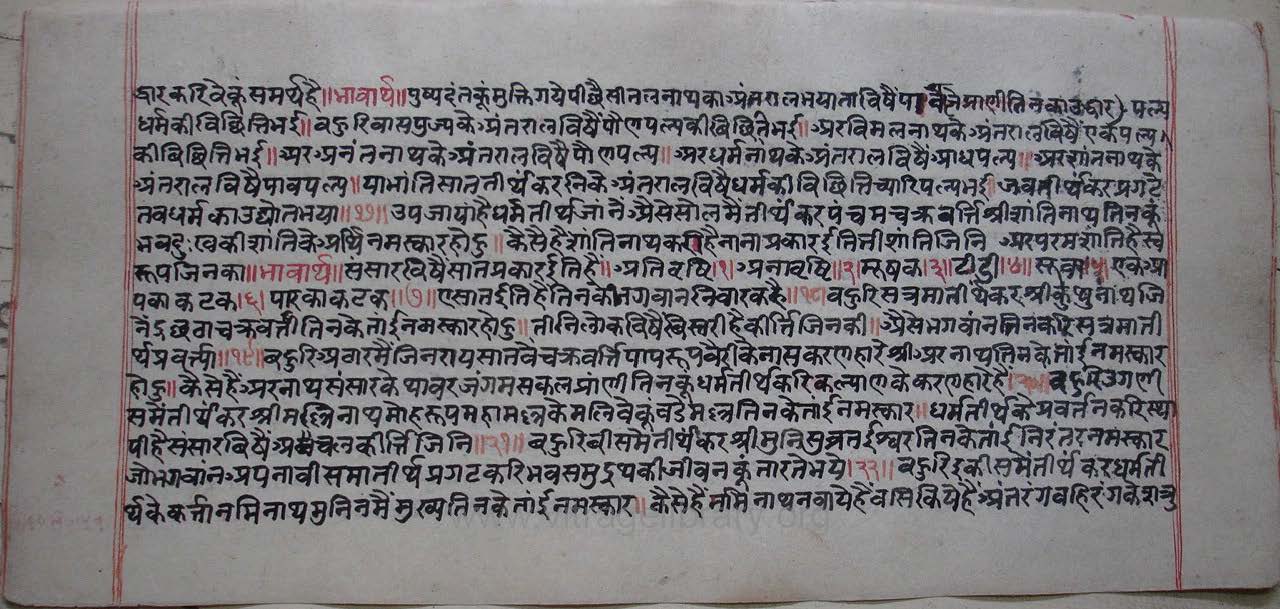 द्धार करिवेकूं समर्थ है॥भावार्थ॥ पुष्पदंतकूं मुक्ति गये पीछै सीतलनाथका अंतराल भया ता विषैं पा तिनका उद्धार) पल्य
धर्मकी विछित्ति भई॥ बहुरि वासपुज्यके अंतराल विषैं पौण पल्यकी विछित्ति भई॥ अर विमलनाथके अंतराल विषैं एक पल्य
की विछित्ति भई॥ अर अनंतनाथके अंतराल विषैं पौण पल्य॥ अर धर्मनाथके अंतराल विषैं आध पल्य॥ अर शांतनाथके
अंतराल विषैं पाव पल्य॥ या भांति सात तीर्थंकरनिके अंतराल विषैं धर्मकी विछित्ति च्यारि पल्य भई। जब तीर्थंकर प्रगटे
तब धर्मका उद्योत भया॥१७॥ उपजाया है धर्मतीर्थ जानैं अैसे सोलमैं तीर्थंकर पंचम चक्रवर्त्ति श्रीशांतिनाथ तिनकूं
भवदुःखकी शांतिके अर्थि नमस्कार होहु॥ कैसै है शांतिनाथ करी है नाना प्रकार ईति की शांति जिनि अर परम शांति है स्व
रूप जिनका॥भावार्थ॥ संसार विषैं सात प्रकार ईति है॥ अतिवृष्टि।१। अनावृष्टि॥२। मूषक।३। टीडी।४॥ सूवा।५। एक आ
पका कटक।६। पारका कटक॥७॥ ए सात ईति हैं तिनके भगवान निवारक है॥१८॥ बहुरि सत्रमा तीर्थंकर श्रीकुंथुनाथ जि
नें छठा चक्रवर्त्ती तिनके तांई नमस्कार होहु॥ तीनि लोक विषैं विस्तरी है कीर्त्ति जिनकी॥ अैसे भगवांन तिनकरि सत्रमा ती
र्थ प्रवर्त्त्या॥१९॥ बहुरि अठारमैं जिनराय सातवें चक्रवर्त्ति पापरूप वैरीके नास करणहारे श्री अरनाथ तिनके तांई नमस्कार
होहु॥ कैसे हैं अरनाथ संसारके थावर जंगम सकल प्राणी तिनकूं धर्मतीर्थ करि कल्याणके करणहारे हैं॥२०॥ बहुरि उगणी
समें तीर्थंकर श्रीमल्लिनाथ मोहरूप महामल्लके मलिवेकूं बडे मल्ल तिनके तांई नमस्कार॥ धर्मतीर्थके प्रवर्त्तन करि स्था
पी है संसार विषैं अचल कीर्त्ति जिनि॥२१॥ बहुरि वीसमै तीर्थंकर श्रीमुनिसुव्रत ईश्वर तिनके तांई निरंतर नमस्कार
जो भगवांन अपना वीसमा तीर्थ प्रगट करि भवसमुद्र थकी जीवनकूं तारते भये॥२२॥ बहुरि इकीसमैं तीर्थंकर धर्मती
र्थके कर्त्ता नमिनाथ मुनिनमैं मुख्य तिनके तांई नमस्कार॥ कैसे हैं नमिनाथ नवाये हैं वसि किये हैं अंतरंग बहिरंगके शत्रु